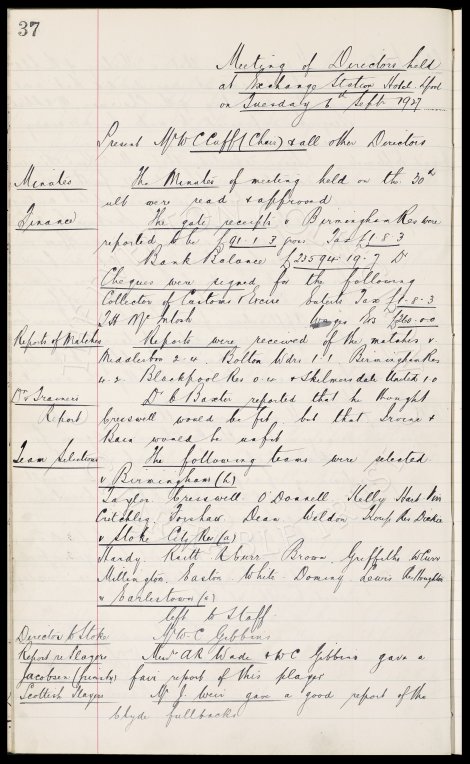 37
Meeting of Directors held
at Exchange Station Hotel L'pool
on Tuesday 6th Sept 1927
Present Mr W C Cuff (Chair) & all other Directors
Minutes The Minutes of meeting held on the 30th
ult were read & approved
Finance The gate receipts v Birmingham Res were
reported to be £91.1.3 gross Tax £1.8.3
Bank Balance £23594.19.7 Dr
Cheques were signed for the following
Collector of Customs & Excise Tax £1.8.3
T H McIntosh Wages £260.0.0
Reports of Matches Reports were received of the matches v.
Middlesbro 2.4. Bolton Wdrs 1.1. Birmingham Res
4.2. Blackpool Res 0.4. & Skelmersdale United 1.0
Dr & Trainers Dr C Baxter reported that he thought
Report Cresswell would be fit but that Irvine &
Bain would be unfit
Team Selections The following teams were selected
v Birmingham (h)
Taylor. Cresswell O'Donnell. Kelly Hart
Critchley. Forshaw. Dean. Weldon. Troup Res
v Stoke City Res (a)
Hardy. Raitt Kerr. Brown. Griffiths.
Millington. Easton. White. Lewis
v Earlestown (a)
left to Staff
Director to Stoke Mr W. C Gibbins
Report re Players Messrs A R Wade & W C Gibbins gave a
Jacobsen fair report of this player
Scottish Players Mr J. Weir gave a good report of the
Clyde fullbacks